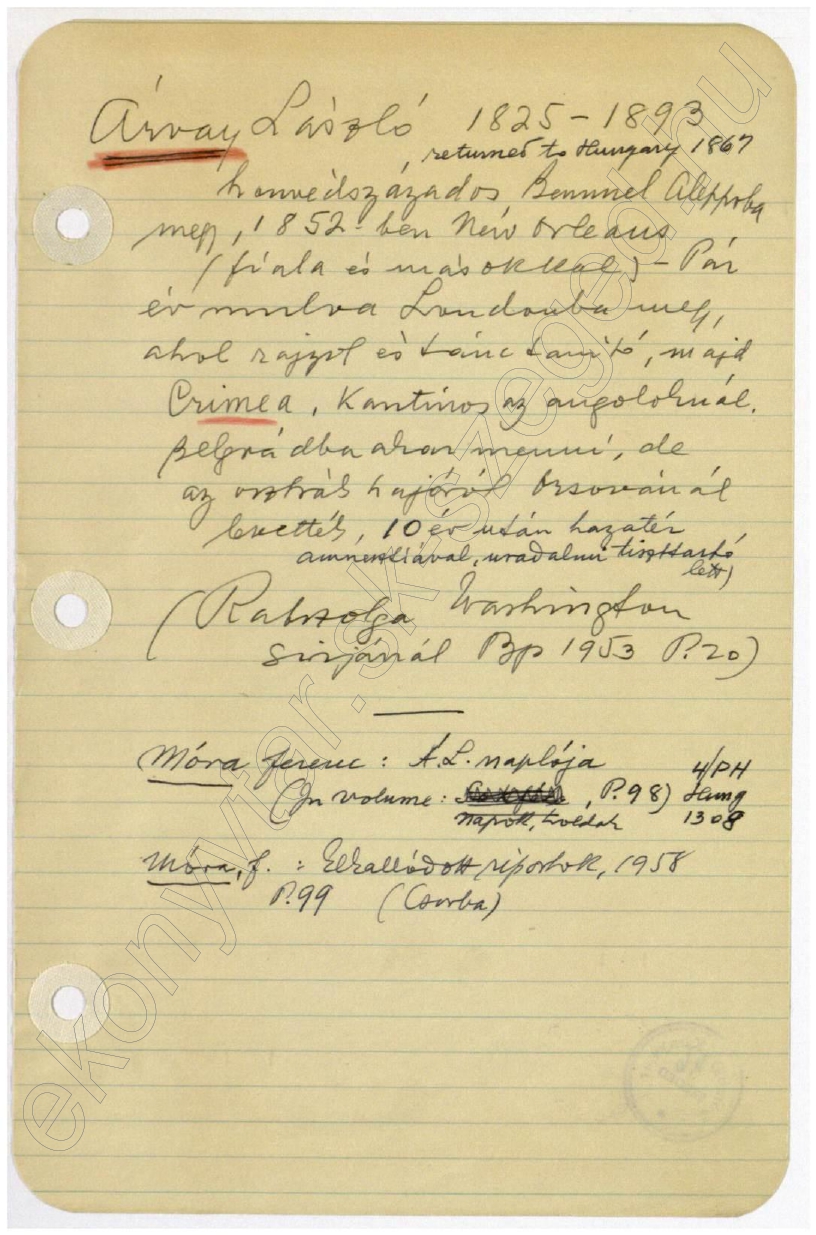 Árvay László 1825–1893
, returned to Hungary 1867
honvédszázados, Bemmel Aleppoba
meg, 1852-ben New Orleans
(Fiala és másokkal) – Pár
év mulva Londonba meg,
ahol rajzol és táncz tanító, majd
Crimea, Kantinos az angoloknál.
Belgrádba akar menni, de
az osztrák hajóról Orsovánál
levették, 10 év után hazatér
amnesztiával, uradalmi tiszttartó
lett)
(Rabszolga Washington
sirjánál Bp 1953 P.20)
Móra Ferenc: Á.L. naplója
(In volume: , P.98)
Napok, 
4/PH
Hung
1308
Móra, F.: Elkallódott riportok, 1958
P.99 (Csorba)
ekonyvtar.sk-szeged.hu